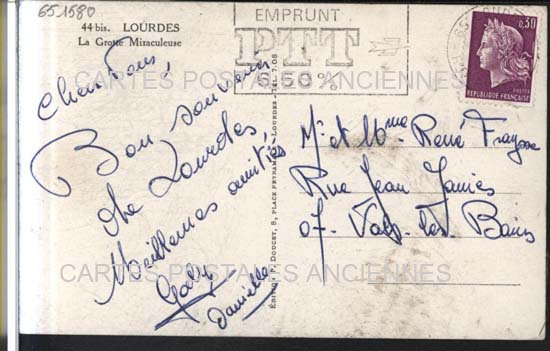 651580
44 bis. LOURDES
La Grotte Miraculeuse
EMPRUNT
PTT
6.50%
0,30
POSTES
REPUBLIQUE FRANÇAISE
CARTES POSTALES ANCIENNES
Chers Tous,
Bon souvenir
de Lourdes,
Meilleures amitiés
Gaby
Danielle
EDITION P. DOUCET, 8, PLACE PEYRAMALE - LOURDES - TEL. 7.08
Mr et Mme René Fraysse
Rue Jean Jaurès
07- Vals-les-Bains
CARTES POSTALES ANCIENNES